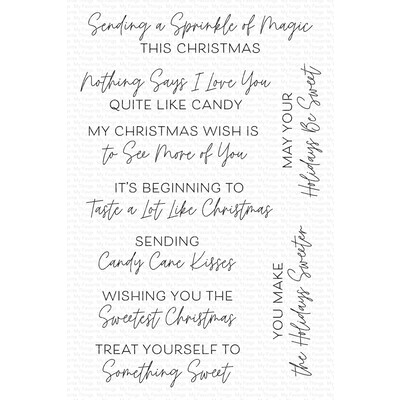 Sending a Sprinkle of Magic
THIS CHRISTMAS
Nothing Says I Love You
QUITE LIKE CANDY
MY CHRISTMAS WISH IS
to See More of You
IT'S BEGINNING TO
Taste a Lot Like Christmas
SENDING
Candy Cane Kisses
WISHING YOU THE
Sweetest Christmas
TREAT YOURSELF TO
Something Sweet
MAY YOUR
Holidays Be Sweet
YOU MAKE
the Holidays Sweeter